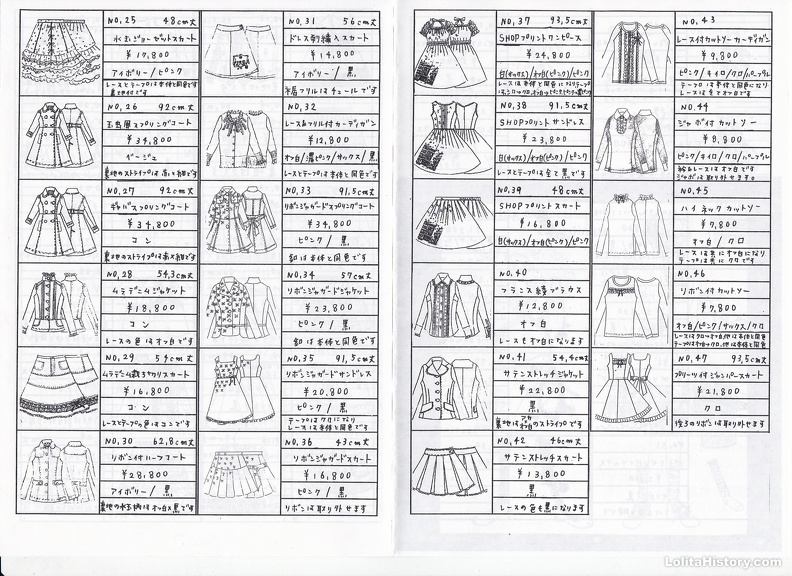 NO,25 48cm丈
水玉ジョーゼットスカート
¥17,800
アイボリー/ピンク
レースとテープは本体と同色です
裏も付です
NO,26 92cm丈
玉虫厚スプリングコート
¥34,800
ベージュ
NO,27 92cm丈
ギャバスプリングコート
¥34,800
コン
NO,28 54,3cm丈
ムラデニムジャケット
¥18,800
コン
レースの色はオフ白です
NO,29 54cm丈
¥16,800
コン
レースとテープの色はコンです
NO,30 62,8cm丈
リボン付ハーフコート
¥28,800
アイボリー/黒
裏地の水玉柄はオフ白×黒です
NO,31 56cm丈
ドレス刺繍入スカート
¥14,800
アイボリー/黒
裾フリルはチュールです
NO,32
レース&フリル付カーディガン
¥12,800
オフ白/濃ピンク/サックス/黒
レースとテープは本体と同色です
NO,33 91,5cm丈
リボンジャガードスプリングコート
¥34,800
ピンク/黒
釦は本体と同色です
NO,34 57cm丈
リボンジャガードジャケット
¥23,800
ピンク/黒
釦は本体と同色です
NO,35 91,5cm丈
リボンジャガードサンドレス
¥20,800
ピンク/黒
テープはクロになり
レースは本体と同色です
NO,36 43cm丈
リボンジャガードスカート
¥16,800
ピンク/黒
リボンは取り外せます
NO,37 93,5cm丈
SHOPプリントワンピース
¥24,800
白(サックス)/オフ白(ピンク)/ピンク
NO,38 91,5cm丈
SHOPプリントサンドレス
¥23,800
白(サックス)/オフ白(ピンク)/ピンク
レースとテープは全て黒です
NO,39 48cm丈
SHOPプリントスカート
¥16,800
白(サックス)/オフ白(ピンク)/ピンク
NO,40
フランス綾ブラウス
¥12,800
オフ白
レースもオフ白になります
NO,41 54,4cm丈
サテンストレッチジャケット
¥22,800
黒
NO,42 46cm丈
サテンストレッチスカート
¥13,800
黒
レースの色も黒になります
NO,43
レース付カットソーカーディガン
¥9,800
ピンク/キイロ/クロ/パープル
テープは本体と同色になり
レースはオフ白です
NO,44
ジャボ付カットソー
¥8,800
ピンク/キイロ/クロ/パープル
衿&レースはオフ白です
ジャボは取り外せます。
NO,45
ハイネックカットソー
¥7,800
オフ白/クロ
レースは共にオフ白になり
テープは共にクロです
NO,46
リボン付カットソー
¥7,800
オフ白/ピンク/サックス/クロ
NO,47 93,5cm丈
プリーツ付ジャンパースカート
¥21,800
クロ
後3のリボンは取り外せます
LolitaHistory.com